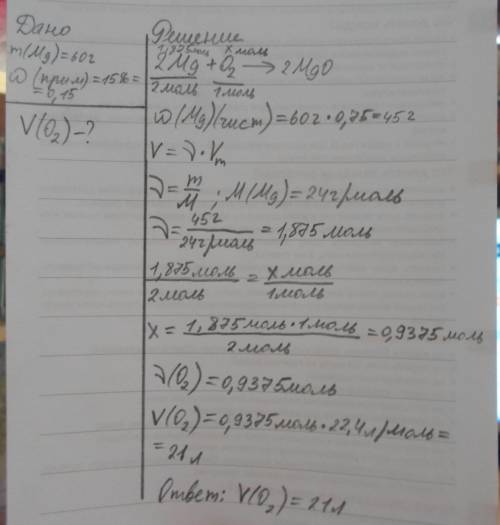 Дано
m(Mg)=60г
ω(прим)=15%=
=0,15
V(O₂)-?
Решение
1,875моль x моль
2Mg+O₂→2MgO
2моль 1моль
ω(Mg)(чист)=60г·0,75=45г
V=ν·Vm
ν=m/M; M(Mg)=24г/моль
ν=45г/24г/моль=1,875моль
1,875моль/2моль=x моль/1моль
x=1,875моль·1моль/2моль=0,9375моль
ν(O₂)=0,9375моль
V(O₂)=0,9375моль·22,4л/моль=
=21л
Ответ: V(O₂)=21л